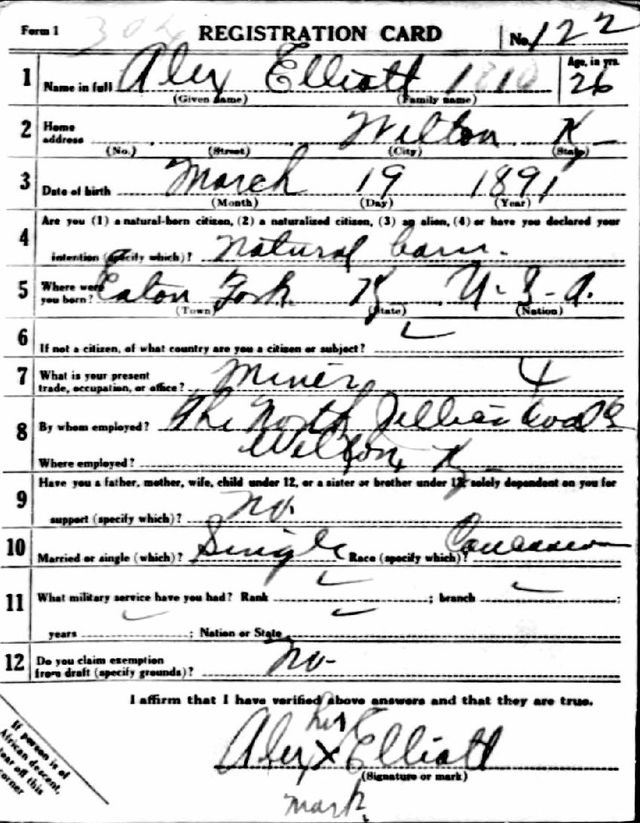 Form 1 304 REGISTRATION CARD No. 122
1 Name in full Alex Elliott 1810 Age, in yrs. 26
(Given name) (Family name)
2 Home address Wilton Ky
(No.) (Street) (City) (State)
3 Date of birth March 19 1891
(Month) (Day) (Year)
Are you (1) a natural-born citizen, (2) a naturalized citizen, (3) an alien, (4) or have you declared your
4 intention (specify which)? natural born.
5 Where were you born? Eaton Fork Ky U-S-A.
(Town) (State) (Nation)
6 If not a citizen, of what country are you a citizen or subject?
7 What is your present trade, occupation, or office? Miner 4
8 By whom employed? The North Jellico Coal Co
Where employed? Wilton, Ky
9 Have you a father, mother, wife, child under 12, or a sister or brother under 12, solely dependent on you for
support (specify which)? no.
10 Married or single (which)? Single Race (specify which)?
11 What military service have you had? Rank ; branch ;
years ; Nation or State
12 Do you claim exemption from draft (specify grounds)? no-
I affirm that I have verified above answers and that they are true.
his
Alex x Elliott
(Signature or mark)
mark
If person is of
African descent,
tear off this
corner